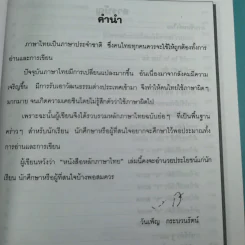 คำนำ
ภาษาไทยเป็นภาษาประจำชาติ ซึ่งคนไทยทุกคนควรจะใช้ให้ถูกต้องทั้งการ
อ่านและการเขียน
ปัจจุบันภาษาไทยมีการเปลี่ยนแปลงมากขึ้น อันเนื่องมาจากสังคมมีความ
เจริญขึ้น มีการรับเอาวัฒนธรรมต่างประเทศเข้ามา จึงทำให้คนไทยใช้ภาษาผิดๆ
มากมาย จนเกิดความเคยชินโดยไม่รู้สึกตัวว่าใช้ภาษาผิดไป
เพราะฉะนั้นผู้เขียนจึงได้รวบรวมหลักภาษาไทยฉบับย่อๆ ที่เป็นพื้นฐาน
คร่าวๆ สำหรับนักเรียน นักศึกษาหรือผู้ที่สนใจอยากจะศึกษาไว้พอประมาณทั้ง
การอ่านและการเขียน
ผู้เขียนหวังว่า "หนังสือหลักภาษาไทย" เล่มนี้คงจะอำนวยประโยชน์แก่นัก
เรียน นักศึกษาหรือผู้ที่สนใจบ้างพอสมควร
วันเพ็ญ